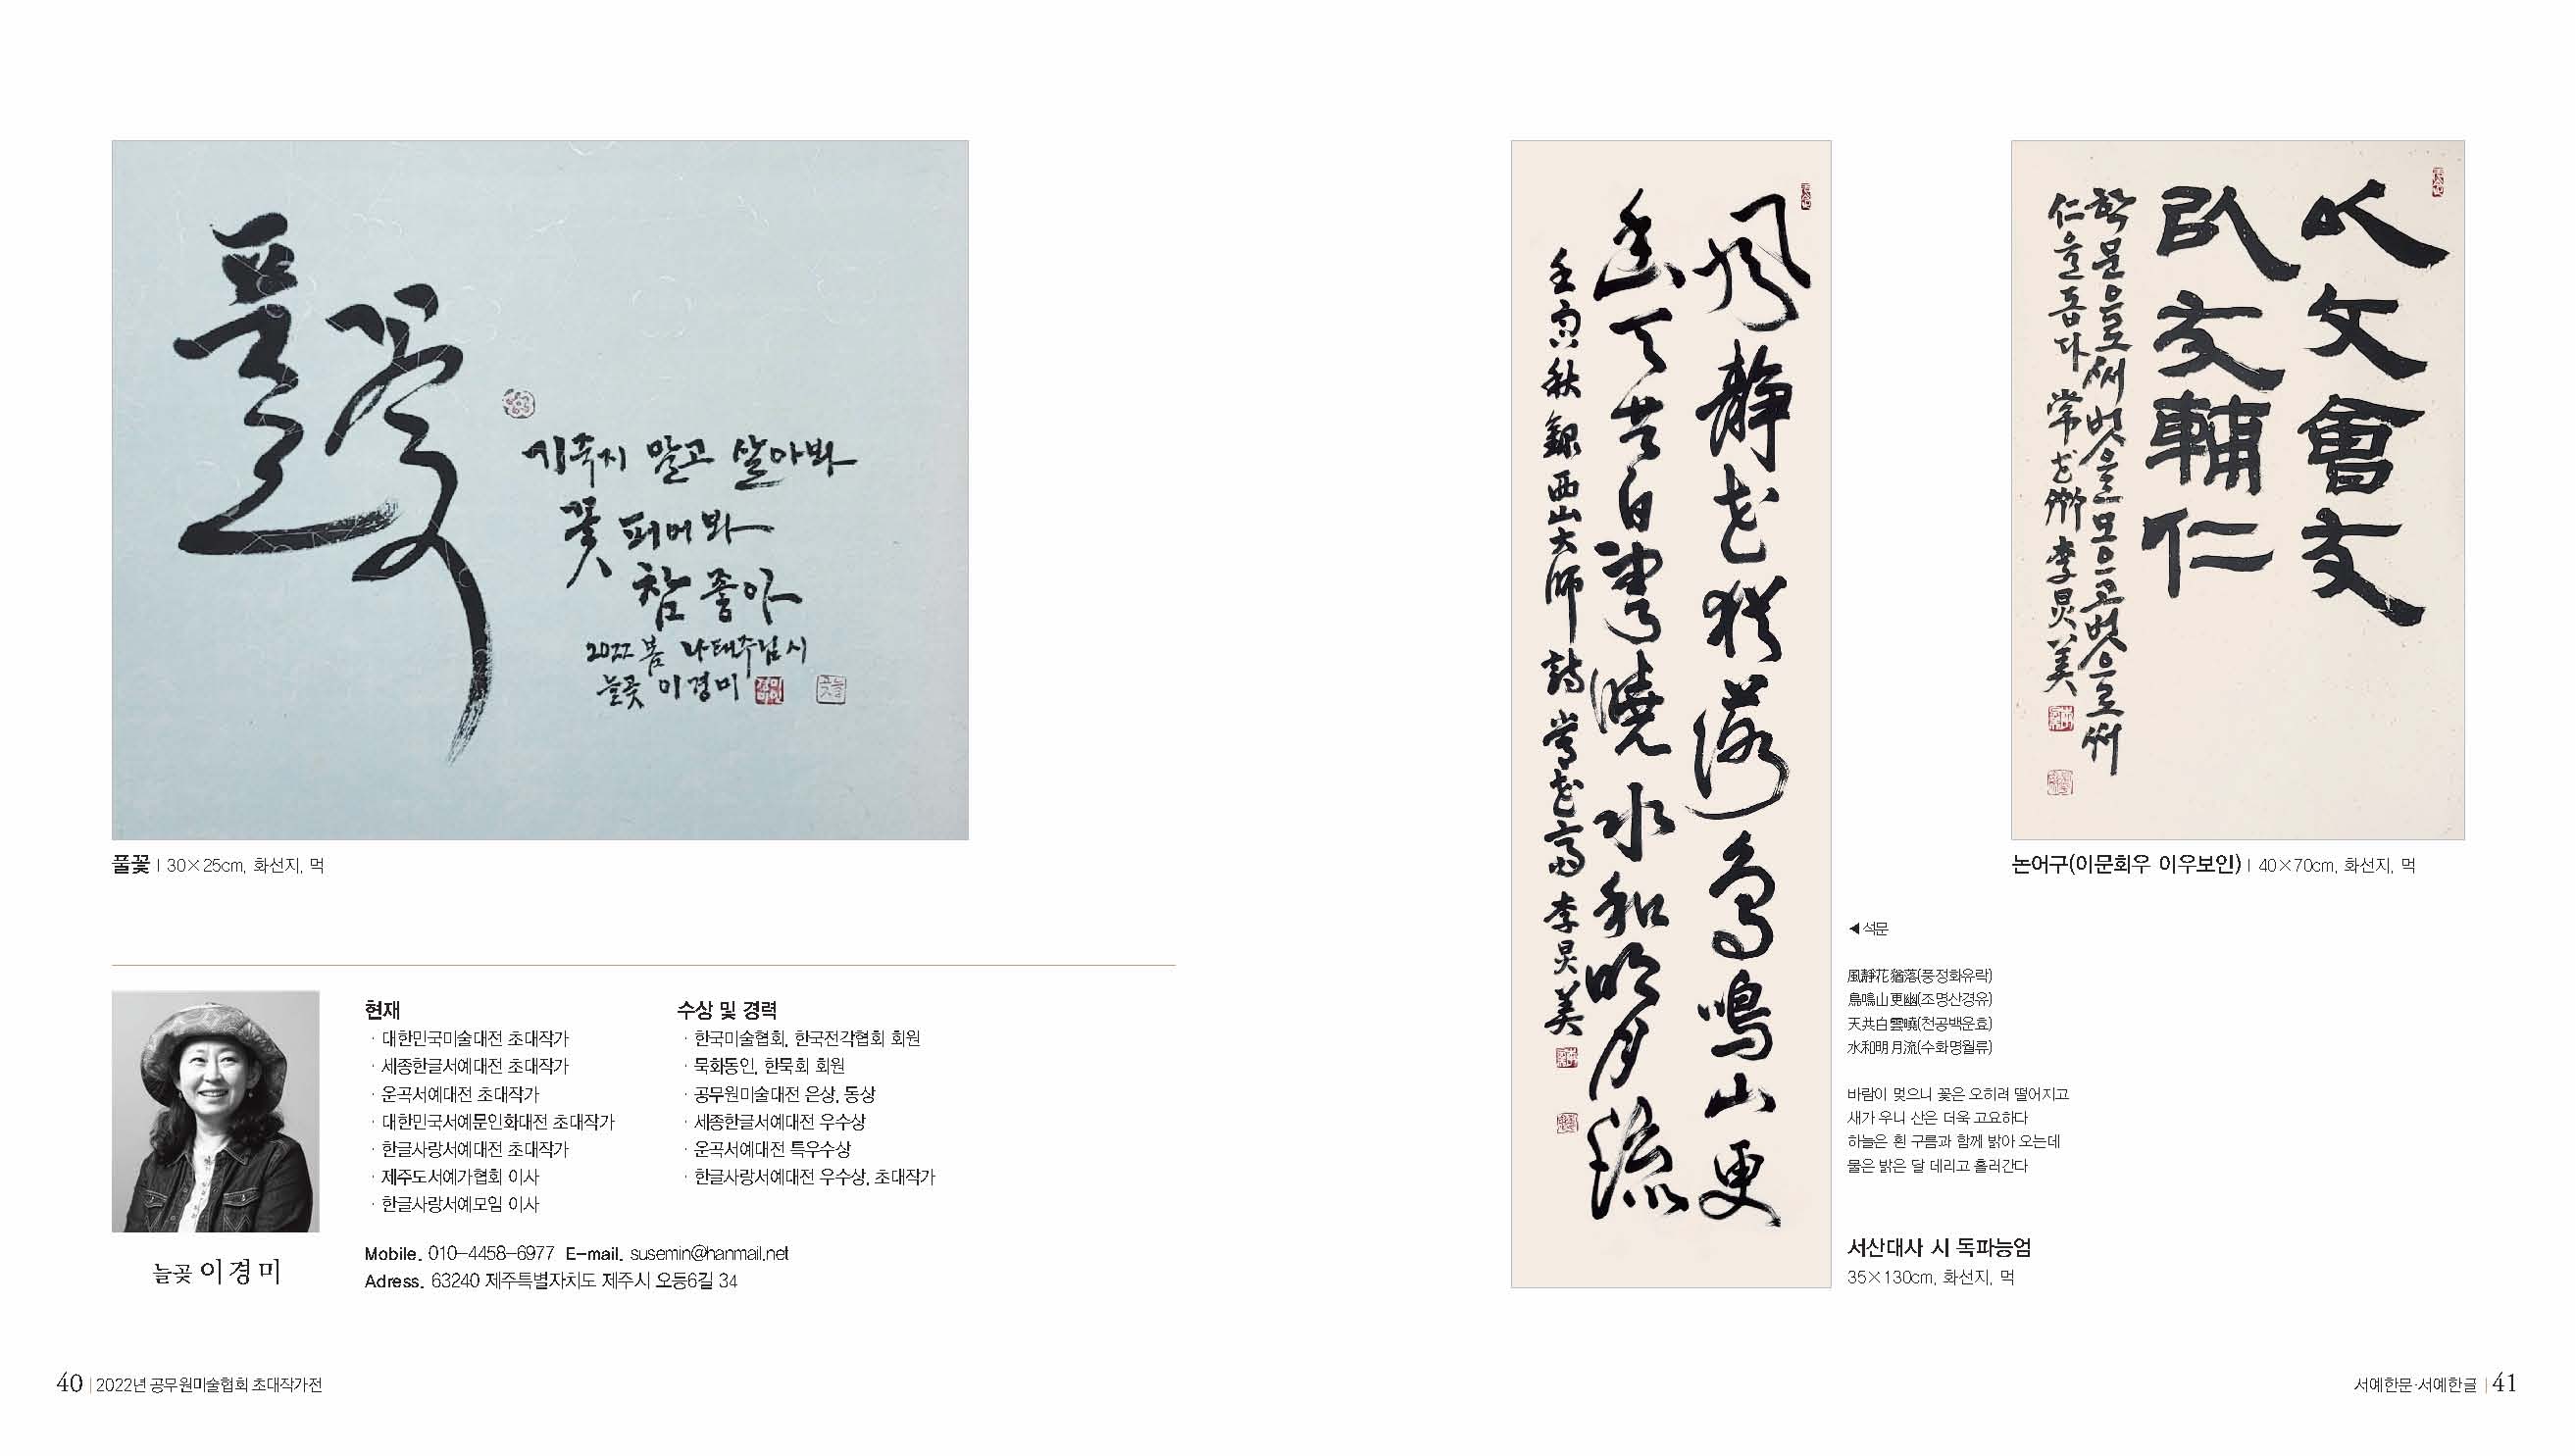 풀꽃
기죽지 말고 살아봐
꽃 피어 봐
참 좋아
2022 봄 나태주님 시
늘곶 이경미
풀꽃 | 30×25cm, 화선지, 먹
현재
· 대한민국미술대전 초대작가
· 세종한글서예대전 초대작가
· 운곡서예대전 초대작가
· 대한민국서예문인화대전 초대작가
· 한글사랑서예대전 초대작가
· 제주도서예가협회 이사
· 한글사랑서예모임 이사
수상 및 경력
· 한국미술협회, 한국전각협회 회원
· 묵화동인, 한묵회 회원
· 공무원미술대전 은상, 동상
· 세종한글서예대전 우수상
· 운곡서예대전 특우수상
· 한글사랑서예대전 우수상, 초대작가
Mobile. 010-4458-6977 E-mail. susemin@hanmail.net
Adress. 63240 제주특별자치도 제주시 오등6길 34
늘곶 이경미
40 | 2022년 공무원미술협회 초대작가전
風靜花猶落鳥鳴山更
幽天共白雲曉水和明月流
壬寅秋 錄 西山大師 詩 李炅美
以文會友
以友輔仁
학문으로써 벗을 모으고 벗으로써
仁을 돕다 李炅美
논어구(이문회우 이우보인) | 40×70cm, 화선지, 먹
◀석문
風靜花猶落(풍정화유락)
鳥鳴山更幽(조명산경유)
天共白雲曉(천공백운효)
水和明月流(수화명월류)
바람이 멎으니 꽃은 오히려 떨어지고
새가 우니 산은 더욱 고요하다
하늘은 흰 구름과 함께 밝아 오는데
물은 밝은 달 데리고 흘러간다
서산대사 시 독파능엄
35×130cm, 화선지, 먹
서예한문·서예한글 | 41